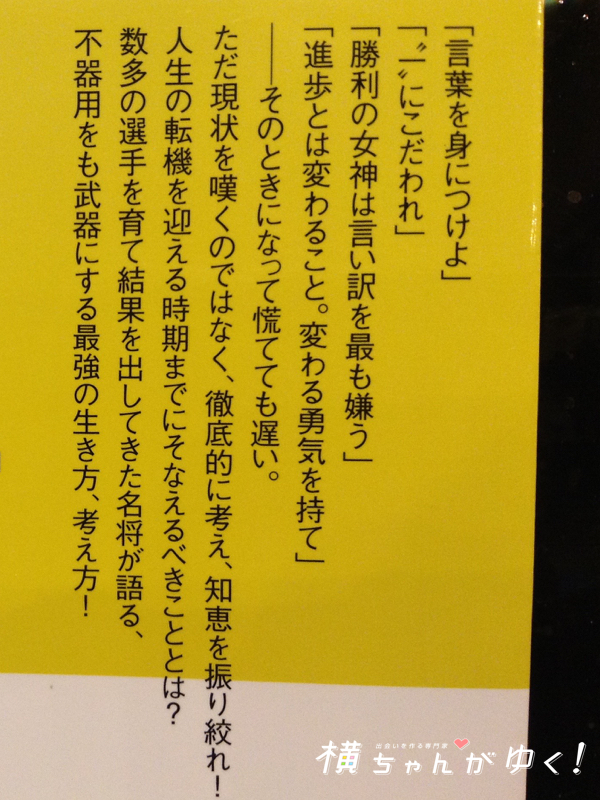 「言葉を身につけよ」
「〝一〟にこだわれ」
「勝利の女神は言い訳を最も嫌う」
「進歩とは変わること。変わる勇気を持て」
――そのときになって慌てても遅い。
ただ現状を嘆くのではなく、徹底的に考え、知恵を振り絞れ！
人生の転機を迎える時期までにそなえるべきこととは？
数多の選手を育て結果を出してきた名将が語る、
不器用をも武器にする最強の生き方、考え方！
出合いを作る専門家
横ちゃんがゆく！